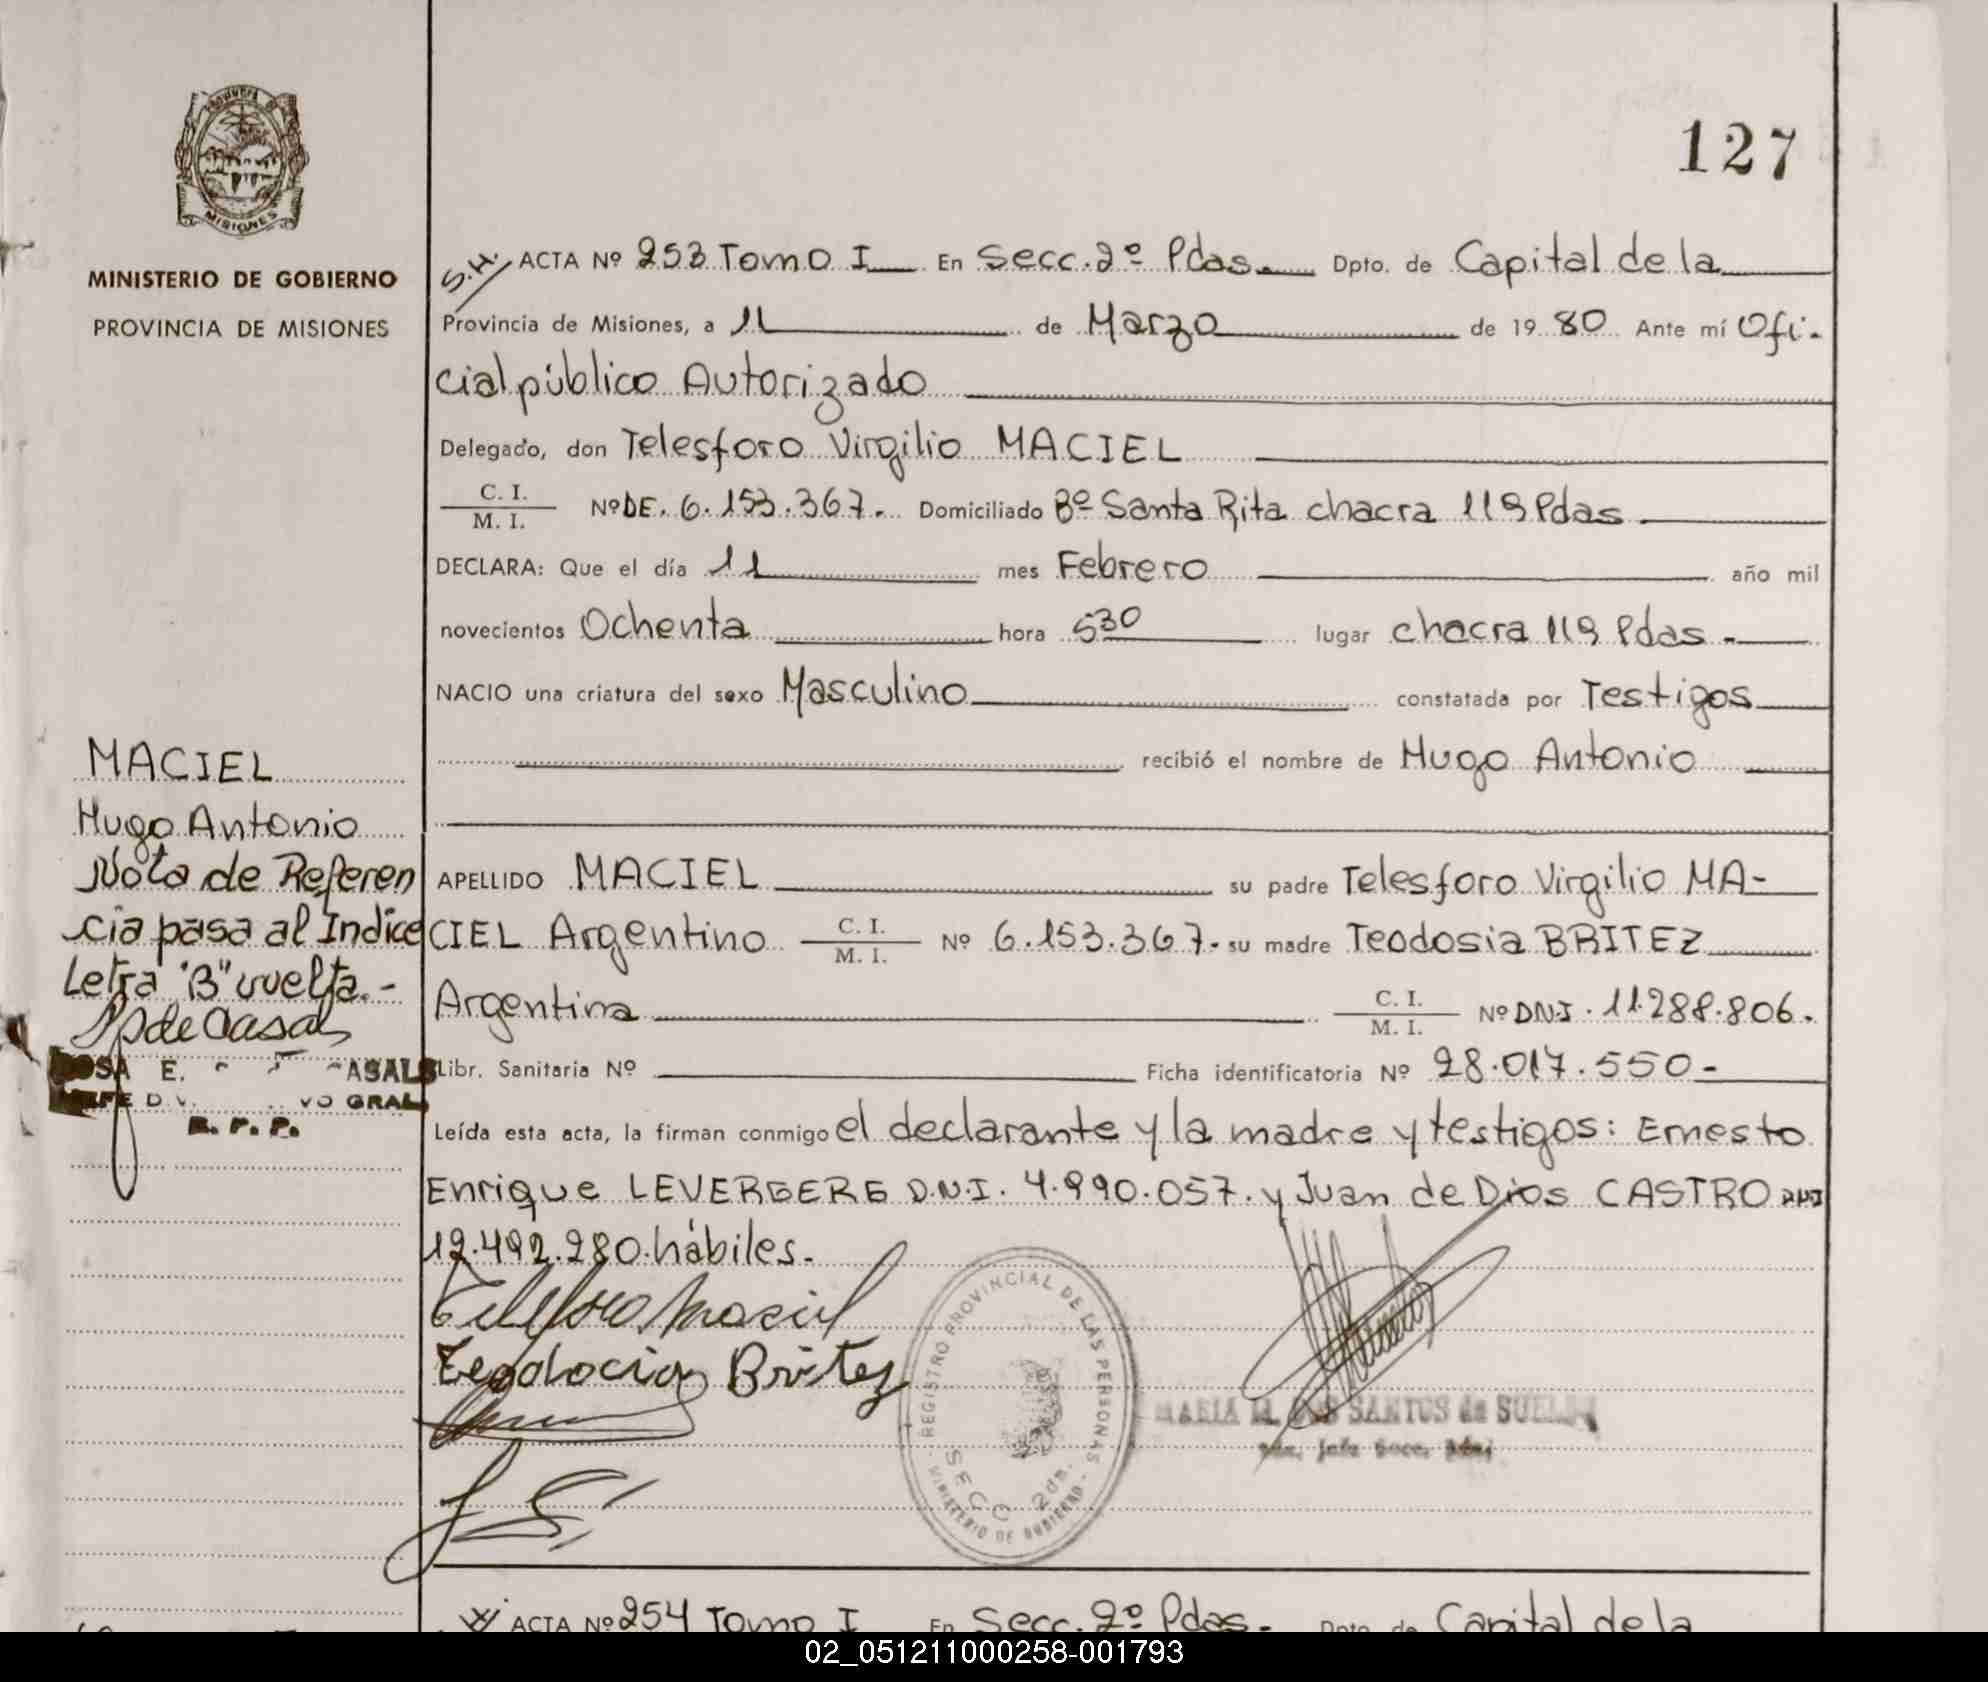 127
MISIONES
MINISTERIO DE GOBIERNO
PROVINCIA DE MISIONES
S.H. ACTA Nº 253 Tomo I En Secc. 2º Pdas. Dpto. de Capital de la
Provincia de Misiones, a 11 de Marzo de 1980 Ante mí Ofi-
cial público Autorizado
Delegado, don Telesforo Virgilio MACIEL
C. I.
M. I. Nº DE. 6.153.367. Domiciliado Bº Santa Rita chacra 119 Pdas
DECLARA: Que el día 11 mes Febrero año mil
novecientos Ochenta hora 530 lugar chacra 119 Pdas.
NACIO una criatura del sexo Masculino constatada por Testigos
recibió el nombre de Hugo Antonio
MACIEL
Hugo Antonio
Nota de Referen
cia pasa al Indice
Letra "B" vuelta.-
APELLIDO MACIEL su padre Telesforo Virgilio MA-
CIEL Argentino C. I.
M. I. Nº 6.153.367. su madre Teodosia BRITEZ
Argentina C. I.
M. I. Nº DN.I. 11.288.806.
Libr. Sanitaria Nº Ficha identificatoria Nº 28.017.550-
Leída esta acta, la firman conmigo el declarante y la madre y testigos: Ernesto
Enrique LEVERGERE D.N.I. 4.990.057. y Juan de Dios CASTRO DNI
12.492.280. hábiles.
Telesforo Maciel
Teodocia Britez
REGISTRO PROVINCIAL DE LAS PERSONAS
SECC 2da.
MINISTERIO DE GOBIERNO
MARIA SANTOS de
R. P. P.
ACTA Nº 254 Tomo I En Secc. 2º Pdas. Dpto. de Capital de la
02_051211000258-001793